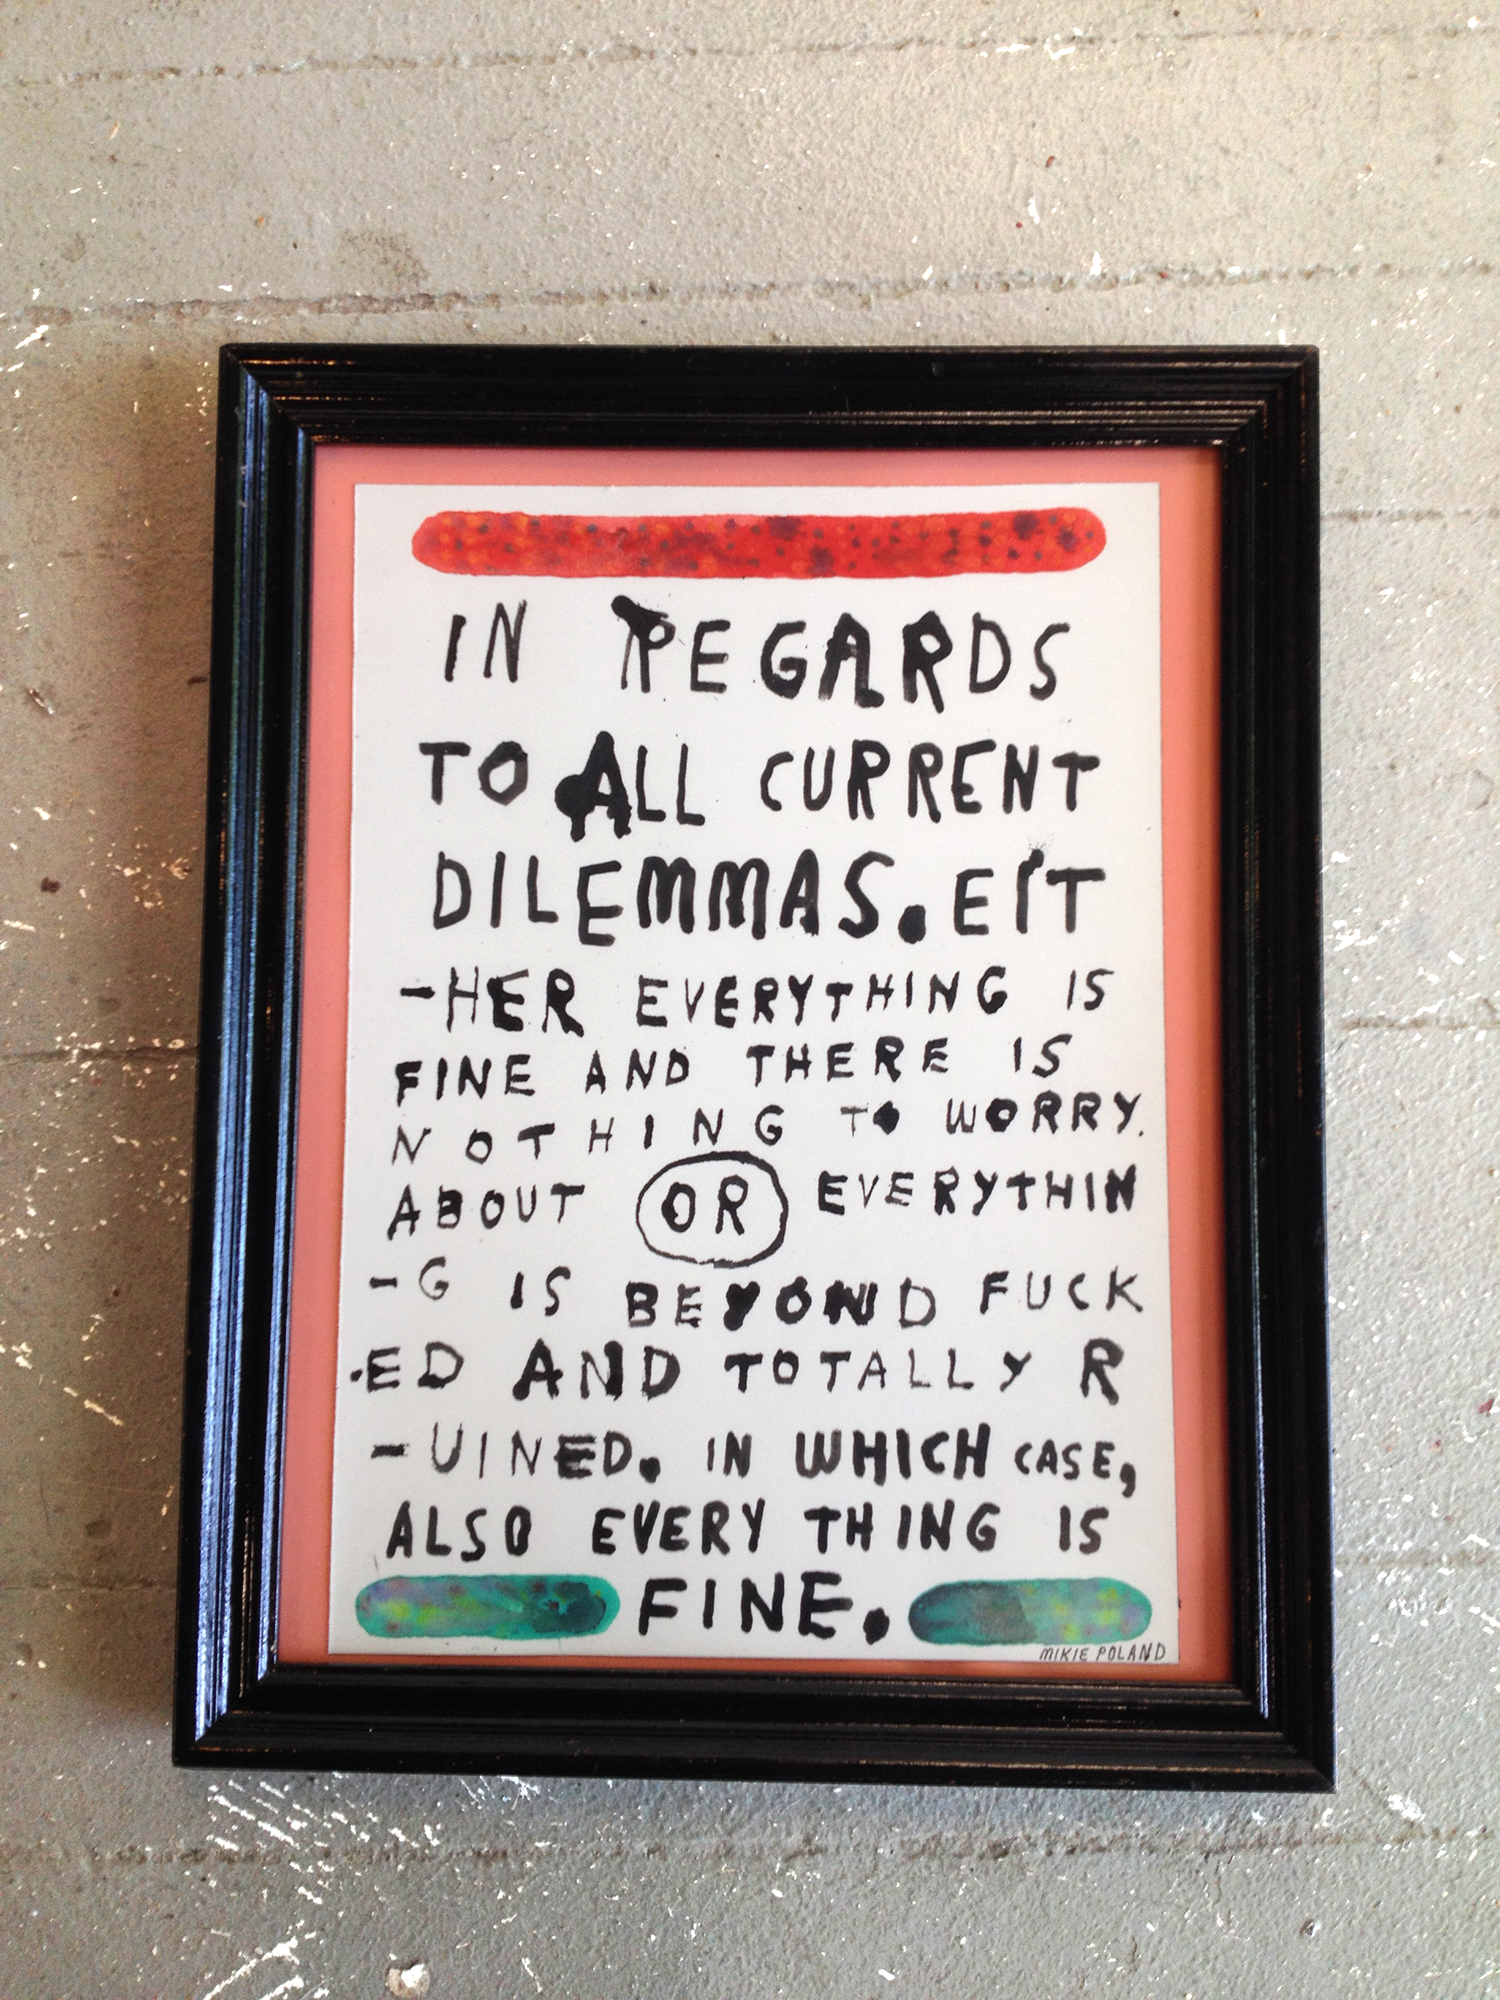 IN REGARDS
TO ALL CURRENT
DILEMMAS. EIT
-HER EVERYTHING IS
FINE AND THERE IS
NOTHING TO WORRY.
ABOUT OR EVERYTHIN
-G IS BEYOND FUCK
-ED AND TOTALLY R
-UINED. IN WHICH CASE,
ALSO EVERY THING IS
FINE.
MIKIE POLAND